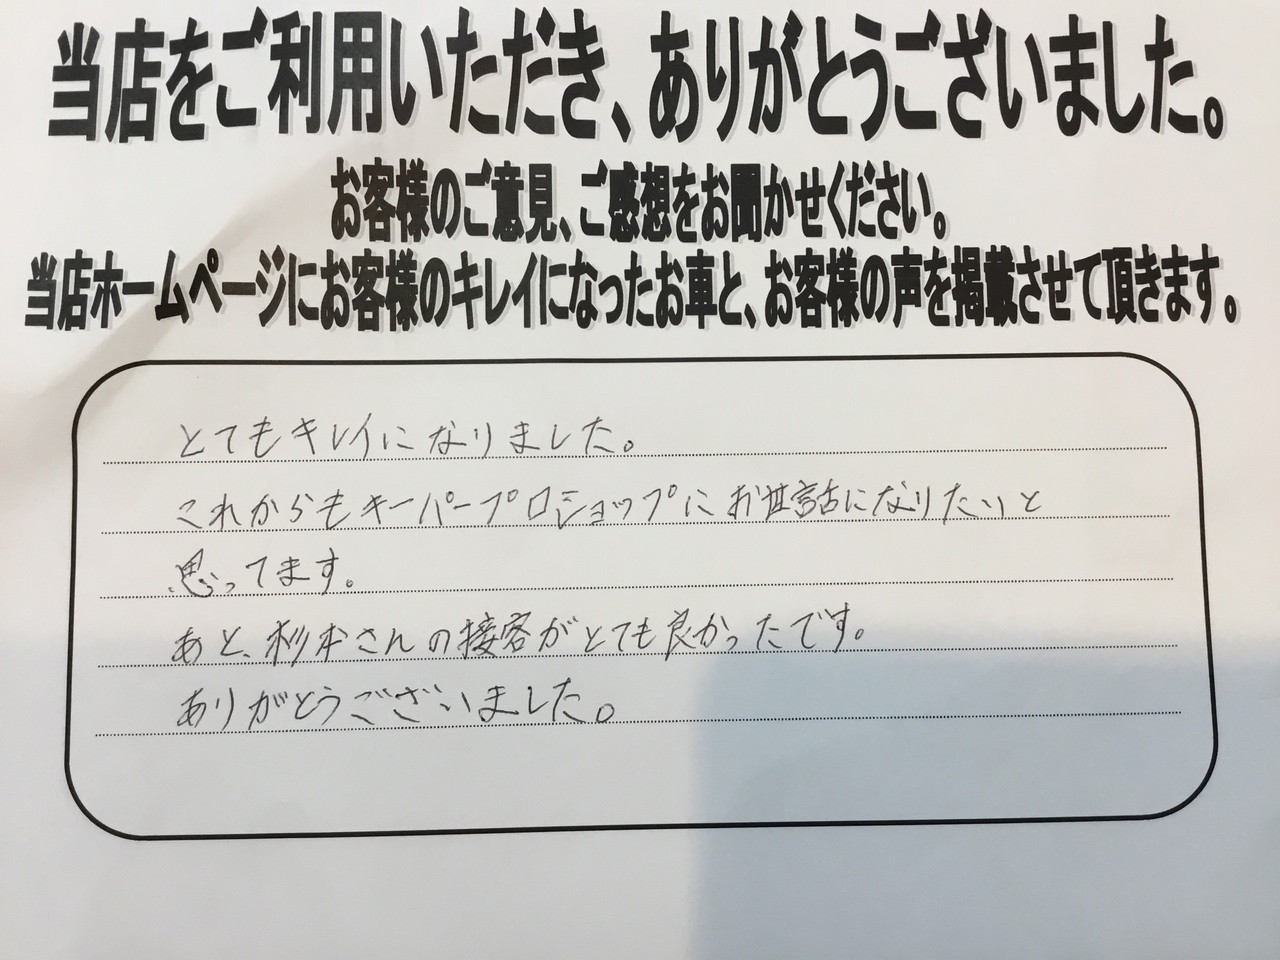 当店をご利用いただき、ありがとうございました。
お客様のご意見、ご感想をお聞かせください。
当店ホームページにお客様のキレイになったお車と、お客様の声を掲載させて頂きます。
とてもキレイになりました。
これからもキーパープロショップにお世話になりたいと
思ってます。
あと、杉本さんの接客がとても良かったです。
ありがとうございました。